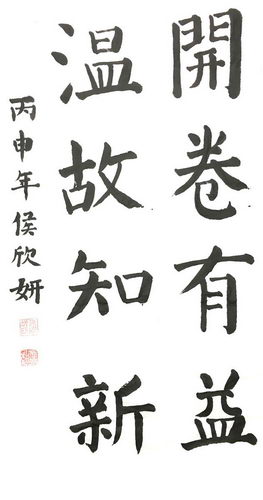 開卷有益
温故知新
丙申年侯欣妍